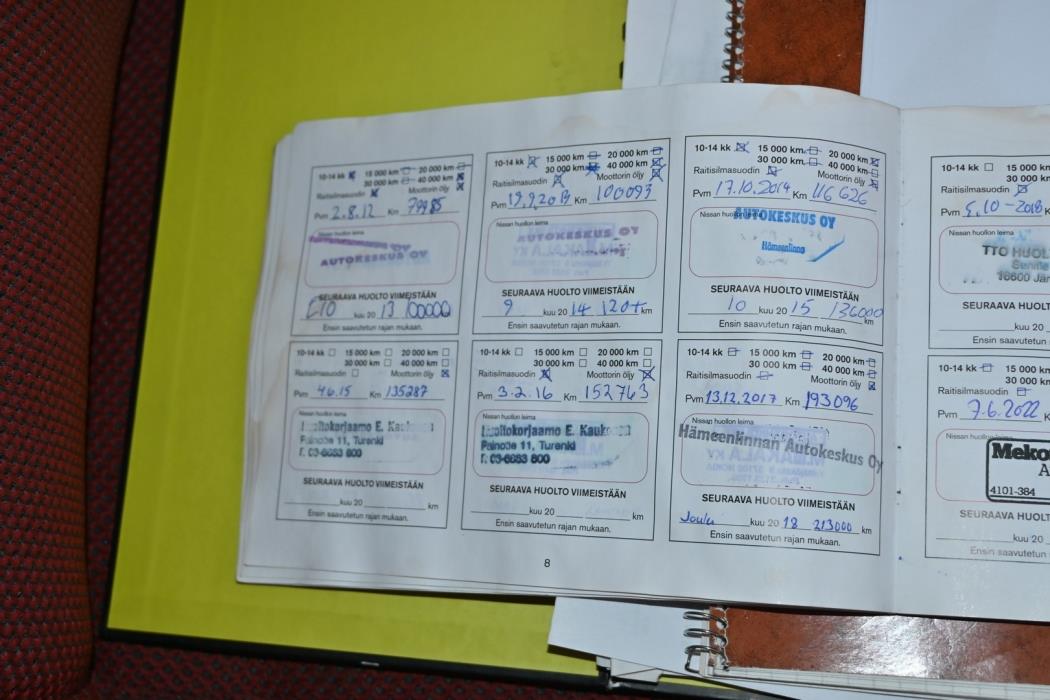 10-14 kk 15 000 km 20 000 km
30 000 km 40 000 km
Raitisilmasuodin Moottorin öljy
Pvm 2.8.12 Km 79985
Nissan huollon leima
AUTOKESKUS OY
SEURAAVA HUOLTO VIIMEISTÄÄN
kuu 20 13 100000
Ensin saavutetun rajan mukaan.
10-14 kk 15 000 km 20 000 km
30 000 km 40 000 km
Raitisilmasuodin Moottorin öljy
Pvm 19.9.2013 Km 100093
Nissan huollon leima
AUTOKESKUS OY
SEURAAVA HUOLTO VIIMEISTÄÄN
9 kuu 20 14 120t km
Ensin saavutetun rajan mukaan.
10-14 kk 15 000 km 20 000 km
30 000 km 40 000 km
Raitisilmasuodin Moottorin öljy
Pvm 17.10.2014 Km 116626
Nissan huollon leima
AUTOKESKUS OY
Hämeenlinna
SEURAAVA HUOLTO VIIMEISTÄÄN
10 kuu 20 15 136000 km
Ensin saavutetun rajan mukaan.
10-14 kk 15 000 km
30 000
Raitisilmasuodin
Pvm 5.10-2018
Nissan huollon leima
TTO HUOL
16600 Jär
SEURAAVA HUOLT
kuu 20
Ensin saavutetun
10-14 kk 15 000 km 20 000 km
30 000 km 40 000 km
Raitisilmasuodin Moottorin öljy
Pvm 4.6.15 Km 135287
Nissan huollon leima
Huoltokorjaamo E. Kauk
Painotie 11, Turenki
SEURAAVA HUOLTO VIIMEISTÄÄN
kuu 20 km
Ensin saavutetun rajan mukaan.
10-14 kk 15 000 km 20 000 km
30 000 km 40 000 km
Raitisilmasuodin Moottorin öljy
Pvm 3.2.16 Km 152763
Nissan huollon leima
Huoltokorjaamo E. Kauk
Painotie 11, Turenki
SEURAAVA HUOLTO VIIMEISTÄÄN
kuu 20 km
Ensin saavutetun rajan mukaan.
10-14 kk 15 000 km 20 000 km
30 000 km 40 000 km
Raitisilmasuodin Moottorin öljy
Pvm 13.12.2017 Km 193096
Nissan huollon leima
Hämeenlinnan Autokeskus Oy
SEURAAVA HUOLTO VIIMEISTÄÄN
Joulu kuu 20 18 213000 km
Ensin saavutetun rajan mukaan.
10-14 kk 15 000 km
30 000
Raitisilmasuodin
Pvm 7.6.2022
Nissan huollon leima
Meko
A
4101-384
SEURAAVA HUOLT
kuu 20
Ensin saavutetun
8